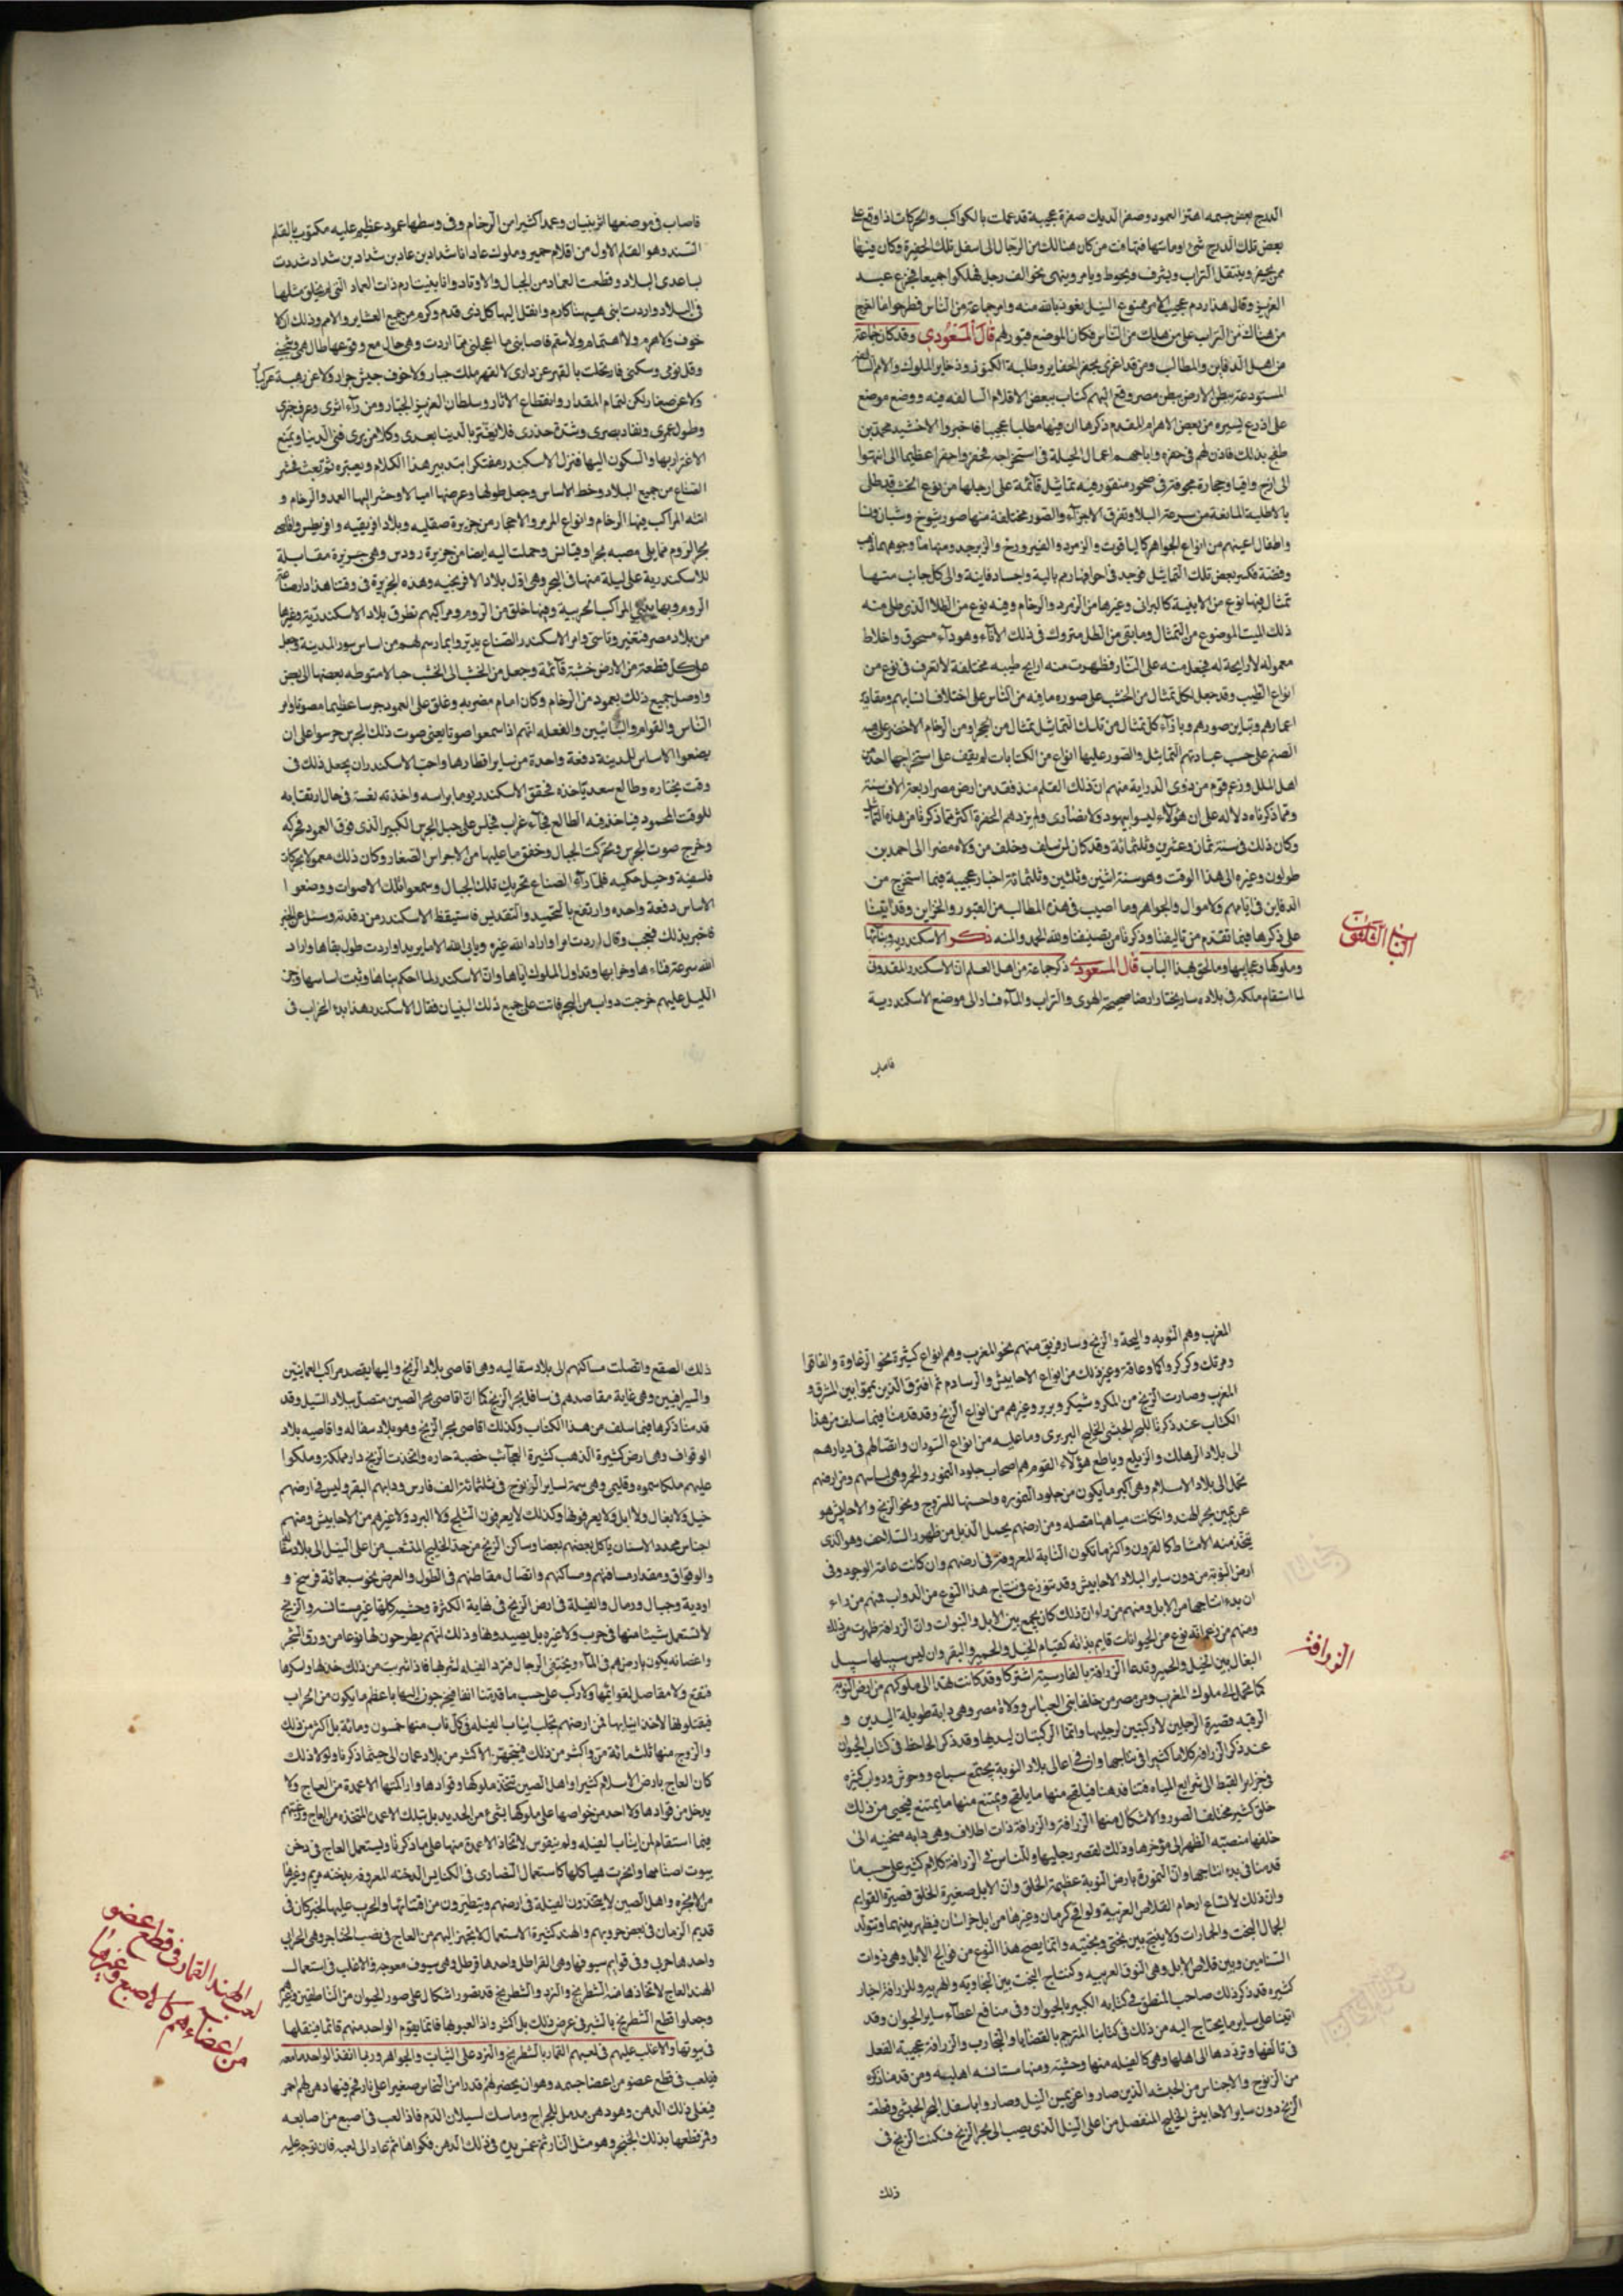 الدرج بعض جسمه اهتز العمود وصفر الديك صفرة عجيبة قد عملت بالكواكب والحركات اذا وقع على
بعض تلك الدرج شئ او ماستها فتهافت من كان هنالك من الرجال الى اسفل تلك الحفيرة وكان فيها
ممن يحفر وينقل التراب ويشرف ويحوط ويامر وينهى نحو الف رجل فهلكوا جميعا فجزع عبد
العزيز وقال هذا ردم عجيب الامر ممنوع النيل نعوذ بالله منه وامر جماعة من الناس فطرحوا ما اخرج
من هناك من التراب على من هلك من الناس فكان الموضع قبورا لهم قال المسعودي وقد كان جماعة
من اهل الدفاين والمطالب ومن قد اغرى بحفر الحفاير وطلبة الكنوز وذخاير الملوك والامم السالفة
المستودعة بطن الارض بطن مصر وقع اليهم كتاب ببعض الاقلام السالفه فيه ووضع موضع
على اذرع يسيره من بعض الاهرام المقدم ذكرها ان فيها مطلبا عجيبا فاخبروا الاخشيد محمد بن
طغج بذلك فاذن لهم فى حفره واباحهم اعمال الحيلة فى استخراجه فحفروا حفرا عظيما الى ان انتهوا
الى ازج واقبا وحجارة مجوفة فى صخور منقور فيه تماثيل قائمة على ارجلها من نوع الخشب قد طلى
بالاطلية المانعة من سرعة البلا وتفرق الاجزآء والصور مختلفة منها صور شيوخ وشبان ونسا
واطفال اعينهم من انواع الجواهر كالياقوت والزمرد والفيروزج والزبرجد ومنها ما وجوهها ذهب
وفضة فكسر بعض تلك التماثيل فوجد فى اجوافها رمم بالية واجساد فانية والى كل جانب منها
تمثال فيها نوع من الابنية كالبرانى وغيرها من الزمرد والرخام وفيه نوع من الطلا الذى طلى منه
ذلك الميت الموضوع من التمثال وما بقى من الطلا متروك فى ذلك الاناء وهو دواء مسحوق واخلاط
معموله لا رايحة له فجعل منه على النار فظهرت منه اراييح طيبه مختلفة لا تعرف فى نوع من
انواع الطيب وقد جعل كل تمثال من الخشب على صوره ما فيه من الناس على اختلاف اسنانهم ومقادير
اعمارهم وتباين صورهم وبازآء كل تمثال من تلك التماثيل تمثال من الحجر او من الرخام الاخضر على هيه
الصنم على حسب عبادتهم التماثيل والصور عليها انواع من الكتابات لم يقف على استخراجها احد من
اهل الملل وزعم قوم من ذوى الدراية منهم ان ذلك القلم منذ فقد من ارض مصر اربعة الاف سنة
وفيما ذكرناه دلاله على ان هؤلاء ليسوا بيهود ولا نصارى ولم يؤدهم الحفرة اكثر مما ذكرنا من هذه التماثيل
وكان ذلك فى سنة ثمان وعشرين وثلثمائة وقد كان لمن سلف وخلف من ولاة مصر الى احمد بن
طولون وغيره الى هذا الوقت وهو سنة اثنين وثلثين وثلثمائة اخبار عجيبة فيما استخرج من
الدفاين فى ايامهم والاموال والجواهر وما اصيب فى هذه المطالب من القبور والخزاين وقد اتينا
على ذكرها فيما تقدم من تاليفنا وذكرنا من تصنيفنا ولله الحمد والمنه ذكر الاسكندريه وبنائها
وملوكها وعجايبها وما لحق بهذا الباب قال المسعودي ذكر جماعة من اهل العلم ان الاسكندر المقدونى
لما استقام ملكه فى بلاده سار يختار ارضا صحيحة الهوى والتراب والمآء فسار الى موضع الاسكندرية
الباب الثلثون
فاصاب
فاصاب فى موضعها اثر بنيان وعمدا كثيرا من الرخام وفى وسطها عمود عظيم عليه مكتوب بالقلم
المسند وهو القلم الاول من اقلام حمير وملوك عاد انا شداد بن عاد بن شداد بن شداد شددت
بساعدى البلاد وقطعت العماد من الجبال والاوتاد وانا بنيت ارم ذات العماد التى لم يخلق مثلها
فى البلاد واردت ابنى هيهنا كارم وانقل اليها كل ذى قدم وكرم من جميع العشاير والامم وذلك اذ لا
خوف ولا هرم ولا اهتمام ولا سقم فاصابنى ما اعجلنى عما اردت وهى حال مع وقوعها طال همى وشجنى
وقل نومى وسكنى فارتحلت بالقهر عن دارى لا لقهر ملك جبار ولا خوف جيش جرار ولا عن رهبة
ولا عن صغار لكن لتمام المقدار وانقطاع الاثار وسلطان العزيز الجبار ومن رآء اثرى وعرف خبرى
وطول عمرى ونفاد بصرى وشدة حذرى فلا يغتر بالدنيا بعدى وكلام يرى فنى الدنيا ويمنع
الاغترار بها والسكون اليها فنزل الاسكندر مفتكرا يتدبر هذا الكلام ويعتبره ثم بعث فحشر
الصناع من جميع البلاد وخط الاساس وجعل طولها وعرضها اميالا وحشر اليها العمد والرخام و
اتته المراكب فيها الرخام وانواع المرمر والاحجار من جزيرة صقليه وبلاد افريقيه واقريطس واقاصى
بحر الروم مما يلى مصبه بحر اوقيانس وحملت اليه ايضا من جزيرة رودس وهى جزيرة مقابلة
للاسكندرية على ليلة منها فى البحر وهى اول بلاد الافرنجيه وهذه الجزيرة فى وقتنا هذا دار صناعة
الروم وبها ينشئ المراكب الحربية وفيها خلق من الروم ومراكبهم تطرق بلاد الاسكندرية وغيرها
من بلاد مصر فتغير وتاسر وتسبى وامر الاسكندر الصناع ان يدوروا بما رسم لهم من اساس سور المدينة وجعل
على كل قطعة من الارض خشبة قآئمة وجعل من الخشب الى الخشب حبالا منوطه بعضها الى بعض
واوصل جميع ذلك بعمود من الرخام وكان امام مضربه وعلق على العمود جرسا عظيما مصوتا وامر
الناس والقوام والبنائين والفعله انهم اذا سمعوا صوتا يعنى صوت ذلك الجرس حرسوا على ان
يضعوا الاساس للمدينة دفعة واحدة من ساير اقطارها واحب الاسكندر ان يجعل ذلك فى
وقت يختاره وطالع سعد ياخذه فخفق الاسكندر يوما براسه واخذته نعسة فى حال ارتقابه
للوقت المحمود فيما اخذ فيه الطالع فجاء غراب فجلس على حبل الجرس الكبير الذى فوق العمود فحركه
وخرج صوت الجرس وتحركت الجبال وخفق ما عليها من الاجراس الصغار وكان ذلك معمولا بحركات
فلسفية وحيل حكيمه فلما رآء الصناع تحريك تلك الحبال وسمعوا تلك الاصوات ووضعوا
الاساس دفعة واحده وارتفع بالتحميد والتقديس فاستيقظ الاسكندر من رقدته وسئل عن الخبر
فاخبر بذلك فتعجب وقال اردت امرا واراد الله غيره ويابى الله الا ما يريد اردت طول بقاها واراد
الله سرعة فناءها وخرابها وتداول الملوك اياها وان الاسكندر لما احكم بناها وثبت اساسها وجن
الليل عليهم خرجت دواب من البحر فاتت على جميع ذلك البنيان فقال الاسكندر هذا بدء الخراب فى
المغرب وهم النوبه والبجة والزنج وسار فريق منهم نحو المغرب وهم انواع كثيرة نحو الزغاوة والفاقوا
ومرتك وكركر واكاو غانة وغير ذلك من انواع الاحابيش والرسادم ثم افترق الذين يمموا بين المشرق و
المغرب وصارت الزنج من المكر وشيكر وبربر وغيرهم من انواع الزنج وقد قدمنا فيما سلف من هذا
الكتاب عند ذكرنا للبحر الحبشى الخليج البربرى وما عليه من انواع السودان واتصالهم فى ديارهم
الى بلاد الدهلك والزيلع وناصع هؤلاء القوم هم اصحاب جلود النمور والحمر وهى لباسهم ومن ارضهم
تحمل الى بلاد الاسلام وهى اكبر ما يكون من جلود النموره واحسنها للسروج وبحر الزنج والاحابش هو
عن يمين بحر الهند وان كانت مياهها متصله ومن ارضهم يحمل الذبل من ظهور السلاحف وهو الذى
يتخذ منه الامشاط كالقرون واكثر ما تكون الدابة المعروفة فى ارضهم وان كانت عامة الوجود وفى
ارض النوبة من دون ساير البلاد الاحابيش وقد تنوزع فى نتاج هذا النوع من الدواب فمنهم من راء
ان بدء انتاجها من الابل ومنهم من راء ان ذلك كان بجمع بين الابل والنمورات وان الزرافة ظهرت من ذلك
ومنهم من زعم انه نوع من الحيوانات قايم بذاته كقيام الخيل والحمير والبقر وان ليس سبيلها سبيل
البغال بين الخيل والحمير وتدعا الزرافة بالفارسية اشتركا وقد كانت تهدا الى ملوكهم من ارض النوبة
كما تحمل الى ملوك المغرب ومن مصر من خلفا بنى العباس وولاة مصر وهى دابة طويلة اليدين و
الرقبه قصيرة الرجلين لا ركبتين لرجليها وانما الركبتان ليديها وقد ذكر الجاحظ فى كتاب الحيوان
عند ذكر الزرافة كلاما كثيرا فى نتاجها وان فى اعالى بلاد النوبة يجتمع سباع ووحوش ودواب كثيره
خلق كثير مختلف الصور والاشكال منها الزرافة والزرافة ذات اظلاف وهى دابه منحنيه الى
خلفها منصبه الظهر الى مؤخرها وذلك لقصر رجليها وللناس فى الزرافة كلام كثير على حسب ما
قدمنا فى بدء انتاجها وان النمورة بارض النوبة عظيمة الخلق وان الابل صغيرة الخلق قصيرة القوايم
كثيره قد ذكر ذلك صاحب المنطق فى كتابه الكبير بالحيوان وفى منافع اعضاء ساير الحيوان وقد
اتينا على ساير ما يحتاج اليه من ذلك فى كتابنا المترجم بالقضايا والتجارب والزرافة عجيبة الفعل
فى تالفها وتوددها الى اهلها وهى كالفيله منها وحشية ومنها مستانسه اهليه ومن قدمنا ذكره
من الزنوج والاجناس من الحبشه الذين صاروا عن يمين النيل وصاروا باسفل البحر الحبشى وقطعت
الزنج دون ساير الاحابيش الخليج المنفصل من اعلى النيل الذى يصب الى بحر الزنج فسكنت الزنج فى
الزرافة
ذلك
ذلك الصقع واتصلت مساكنهم الى بلاد سفاليه وهى اقاصى بلاد الزنج واليها يقصد مراكب العمانيين
والسيرافيين وهى غاية مقاصدهم فى سافل بحر الزنج كما ان اقاصى بحر الصين متصل ببلاد السيل وقد
قدمنا ذكرها فيما سلف من هذا الكتاب وكذلك اقاصى بحر الزنج وهو بلاد سفاله واقاصيه بلاد
الوقواق وهى ارض كثيرة الذهب كثيرة العجائب خصبة حاره واتخذت الزنج دار مملكة وملكوا
عليهم ملكا سموه وقليمى وهى سمة لساير الزنوج فى ثلثمائة الف فارس ودابهم البقر وليس فى ارضهم
خيل ولا بغال ولا ابل ولا يعرفونها وكذلك لا يعرفون الثلج ولا البرد ولا غيرهم من الاحابيش ومنهم
اجناس محدده الاسنان ياكل بعضهم بعضا ومساكن الزنج من حد الخليج المتشعب من اعلى النيل الى بلاد سفاله
والوقواق ومقدار مسافتهم ومساكنهم واتصال مقاطنهم فى الطول والعرض نحو سبعمائة فرسخ و
اودية وجبال ورمال والفيلة فى ارض الزنج فى نهاية الكثرة وحشيه كلها غير مستانسه والزنج
لا تستعمل شيئا منها فى حرب ولا غيره بل يصيدونها وذلك انهم يطرحون لها نوعا من ورق الشجر
واغصانه يكون بارضهم فى المآء ويختفى الرجال فترد الفيله لشربها فاذا شربت من ذلك خدرها واسكرها
فتقع ولا مفاصل لقوائمها ولا ركب على حسب ما قدمنا انفا فيخرجون اليها باعظم ما يكون من الحراب
فيقتلونها لاخذ انيابها فمن ارضهم تجلب انياب الفيله فى كل ناب منها خمسون ومائة بل اكثر من ذلك
والزوج منها ثلثمائة من واكثر من ذلك فيتجهز الاكثر من بلاد عمان الى حيثما ذكرنا ولولا ذلك
كان العاج بارض الاسلام كثيرا واهل الصين تتخذ ملوكها وقوادها واراكنتها الاعمدة من العاج ولا
يدخل من قوادها ولا احد من خواصها على ملوكها بشئ من الحديد بل بتلك الاعمدة المتخذه من العاج ورغبتهم
فيما استقام من انياب الفيله ولم يتقوس لاتخاذ الاعمدة منها على ما ذكرنا ويستعمل العاج فى دخن
بيوت اصنامها وابخرت هياكلها كاستعمال النصارى فى الكنايس الدخنه المعروفه بدخنه مريم وغيرها
من الابخره واهل الصين لا يتخذون الفيلة فى ارضهم ويتطيرون من اقتنائها والحرب عليها لخبر كان فى
قديم الزمان فى بعض حروبهم والهند كثيرة الاستعمال لما يتجهز اليهم من العاج فى نصب الخناجر وهى الحرابى
واحدها حربى وفى قوايم سيوفها وهى القراطل واحدها قرطل وهى سيوف معوجة والاغلب فى استعمال
الهند العاج لاتخاذها منه الشطرنج والنرد والشطرنج قد يصور اشكال على صور الحيوان من الناطقين وغيرهم
وجعلوا قطع الشطرنج بالشبر فى عرض ذلك بل اكثر واذا لعبوا بها فانما يقوم الواحد منهم قائما فينقلها
فى بيوتها والاغلب عليهم فى لعبهم القمار بالشطرنج والنرد على الثياب والجواهر وربما انفذ الواحد ما معه
فيلعب فى قطع عضو من اعضا جسمه وهو ان يحضر لهم قدرا من النحاس صغيرا على نار فحم فيها دهن لهم احمر
فيغلى ذلك الدهن وهو دهن مدمل للجراح وماسك لسيلان الدم فاذا لعب فى اصبع من اصابعه
وقمر قطعها بذلك الخنجر وهو مثل النار ثم غمس يده فى ذلك الدهن فكواها ثم عاد الى لعبه فان توجه عليه
لعب الهند القمار فى قطع عضو
من اعضآءهم كالاصبع وغيرها